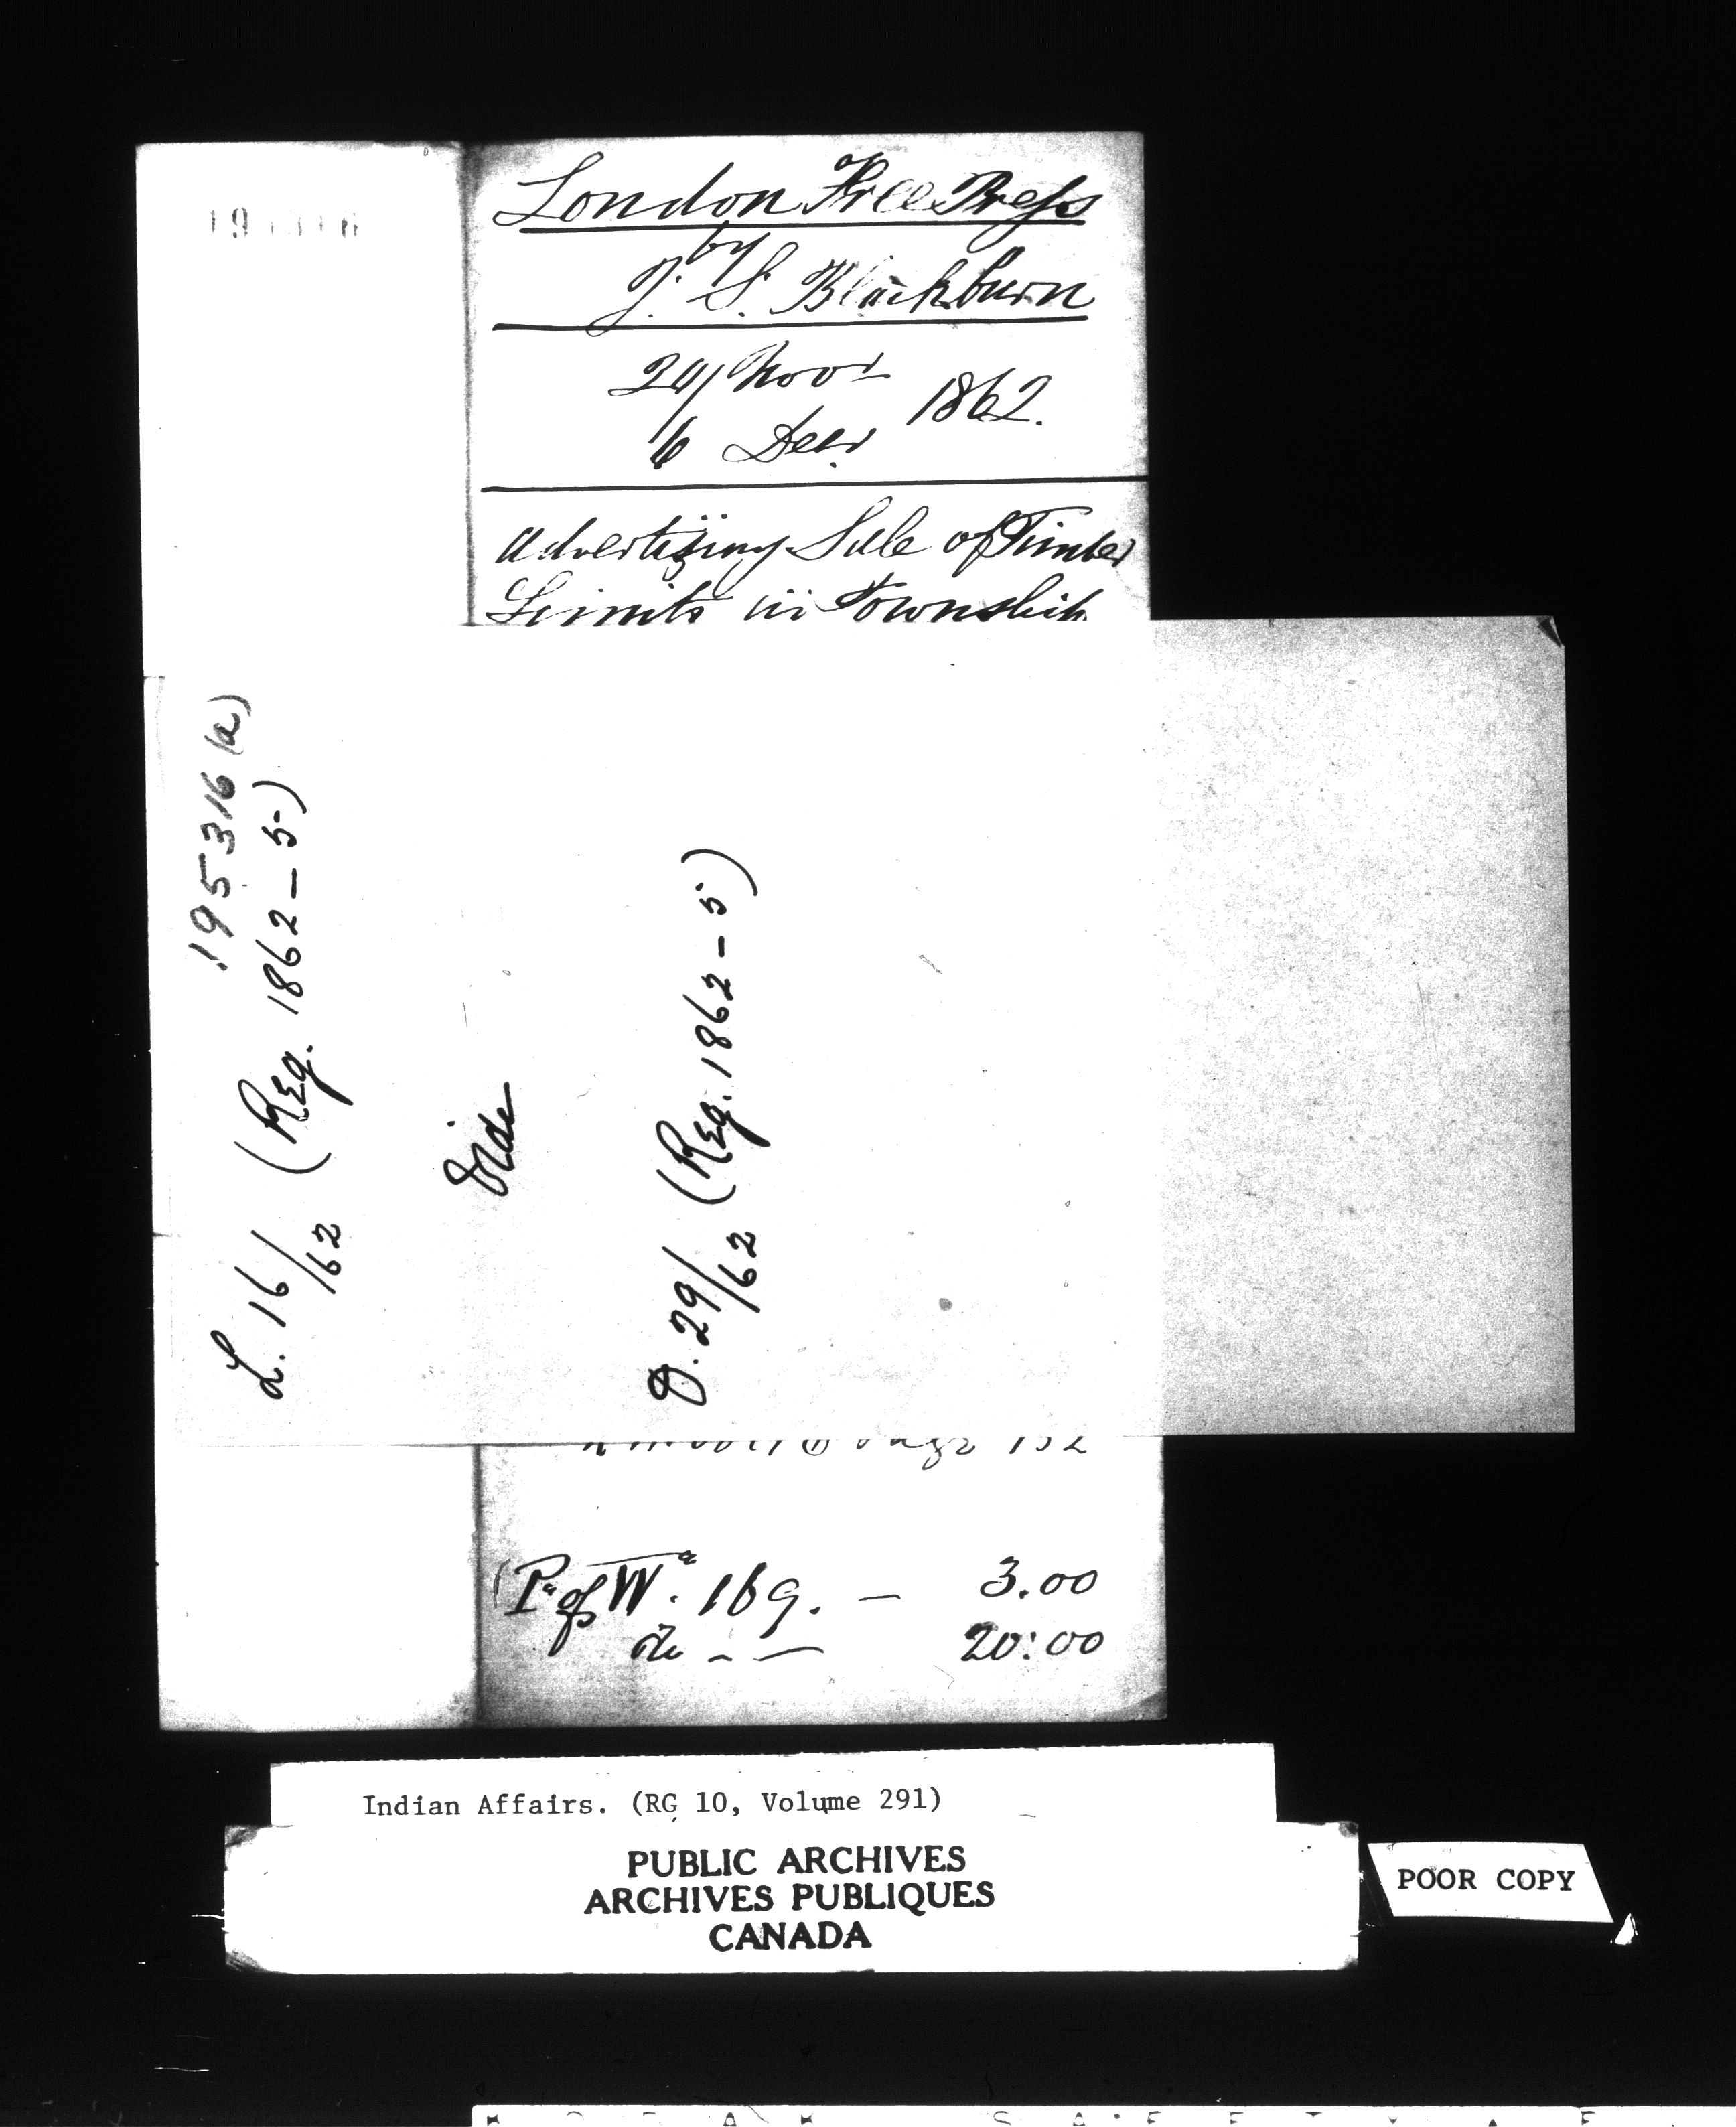 London Free Press
by
J. S. Blackburn
29/ Novr
6 Decr 1862.
advertizing Sale of Timber
Limits in Township
195316 (a)
L. 16/62 (Reg. 1862-5)
Vide
D. 29/62 (Reg. 1862-5)
152
Pr of Wt. 169. — 3.00
do - — 20:00
Indian Affairs. (RG 10, Volume 291)
PUBLIC ARCHIVES
ARCHIVES PUBLIQUES
CANADA
POOR COPY